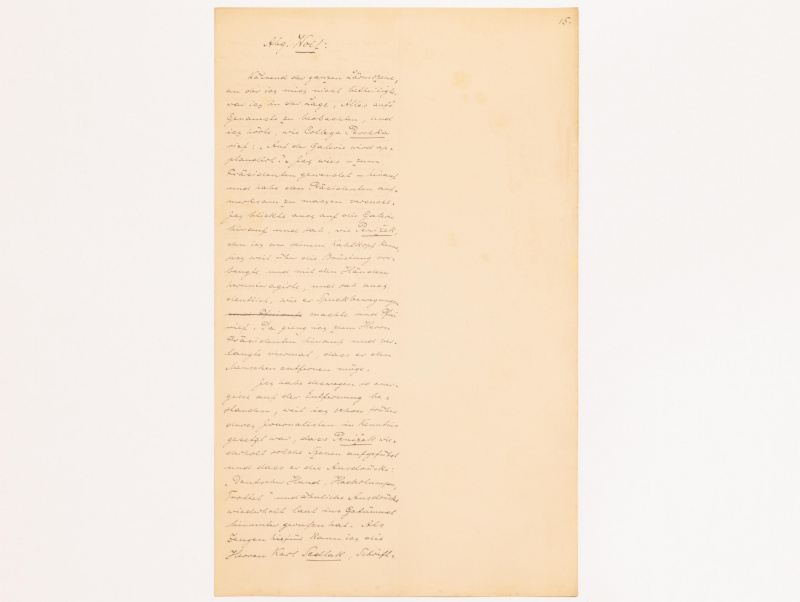 15.
Abg. Wolf:
Während der ganzen Lärmszene,
an der ich mich nicht betheiligte,
war ich in der Lage, Alles aufs
Genaueste zu beobachten, und
ich hörte, wie College Peschka
rief: „Auf der Galerie wird ap-
plaudirt!" Ich wies – zum
Präsidenten gewendet – hinauf
und habe den Präsidenten auf-
merksam zu machen versucht.
Ich blickte auch auf die Galerie
hinauf und sah, wie Penížek,
den ich an seinem Kahlkopf kenne,
sich weit über die Brüstung vor-
beugte und mit den Händen
herumagirte, und sah auch
deutlich, wie er Spuckbewegungen
machte und Pfui
rief. Da ging ich zum Herrn
Präsidenten hinauf und ver-
langte viermal, dass er den
Menschen entfernen möge.
Ich habe deswegen so ener-
gisch auf der Entfernung be-
standen, weil ich schon früher
durch Journalisten in Kenntnis
gesetzt war, dass Penížek wie-
derholt solche Szenen aufgeführt
und dass er die Ausdrücke:
„Deutscher Hund,
Trottel" und ähnliche Ausdrücke
wiederholt laut ins Getümmel
hinunter gerufen hat. Als
Zeugen hiefür kann ich die
Herren Karl Sedlak, Schrift-